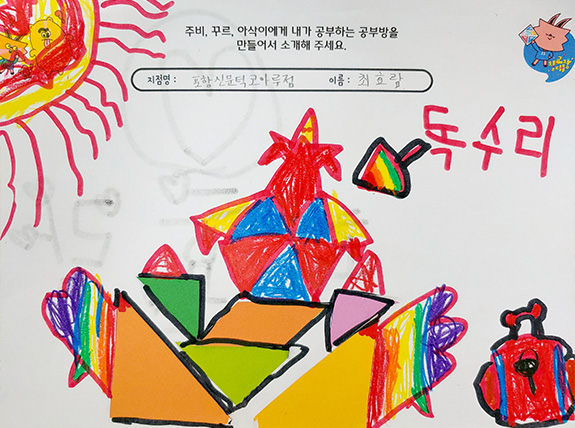 주비, 꾸르, 아삭이에게 내가 공부하는 공부방을
만들어서 소개해 주세요.
지점명 : 포항신문덕코아루점 이름 : 최효람
독수리